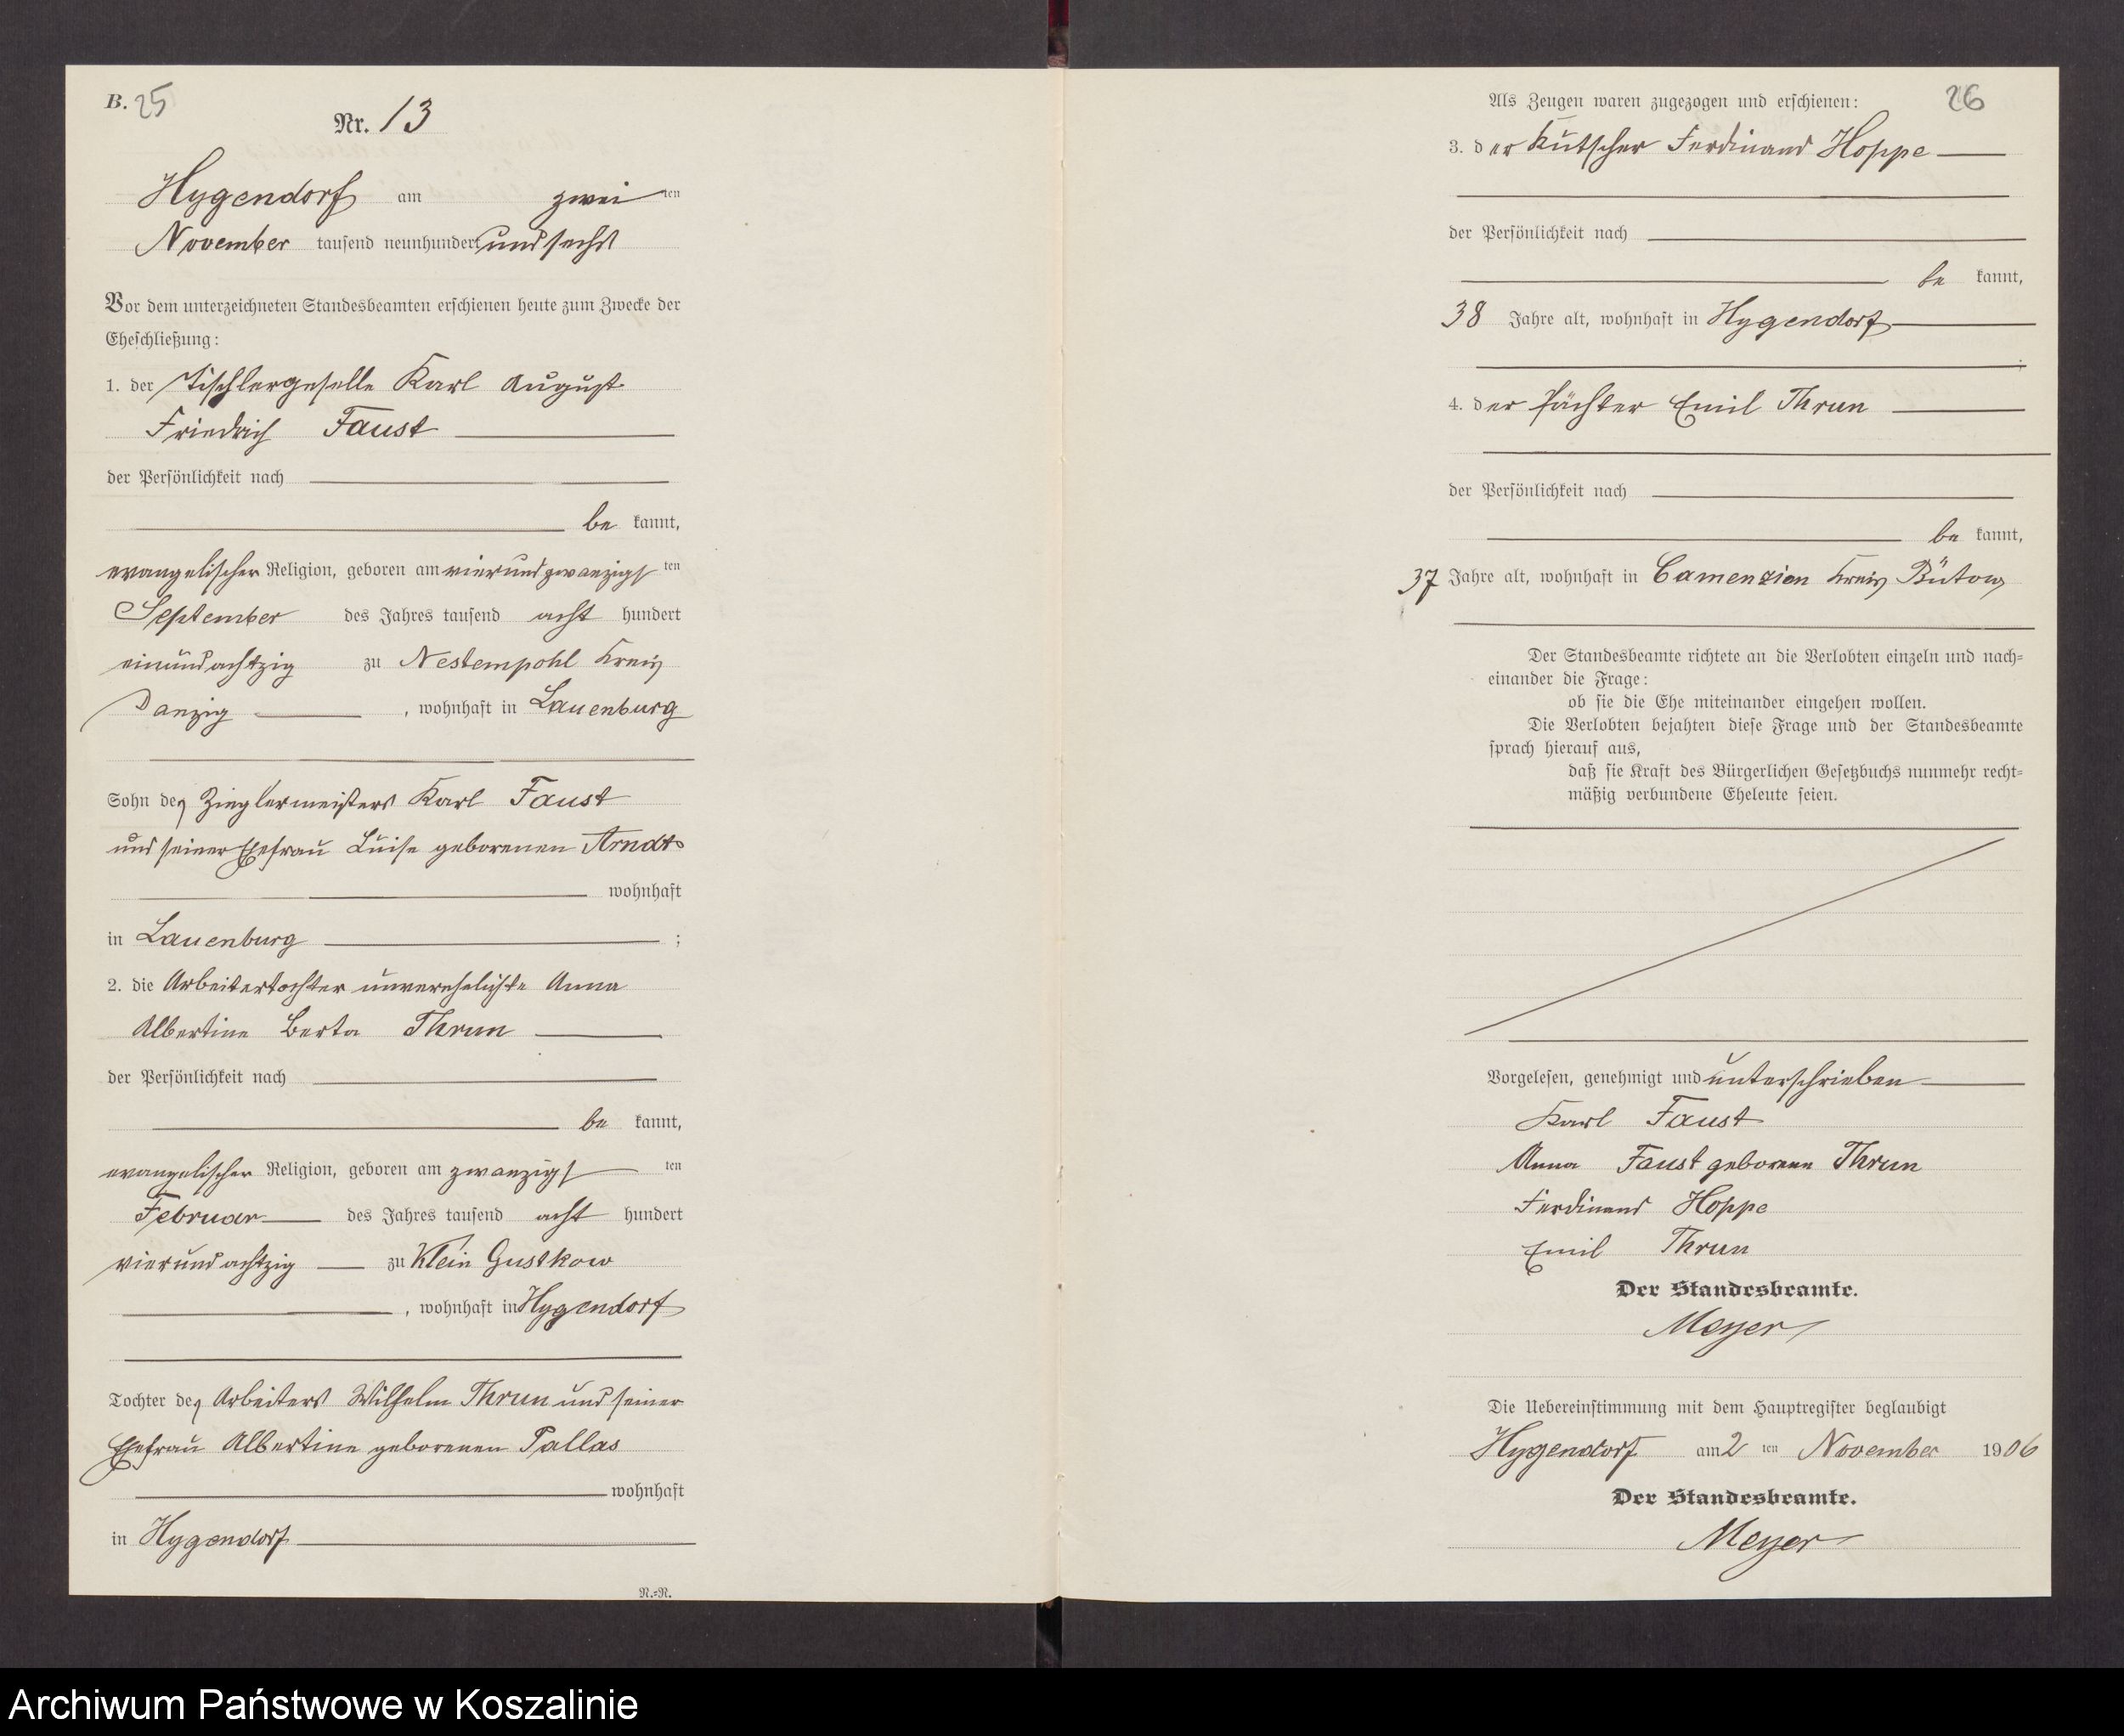 B. 25
Nr. 13
Hygendorf am zweiten
November tausend neunhundert und sechs
Vor dem unterzeichneten Standesbeamten erschienen heute zum Zwecke der
Eheschließung:
1. der Tischlergeselle Karl August
Friedrich Faust
der Persönlichkeit nach
bekannt,
evangelischer Religion, geboren am vierundzwanzigsten
September des Jahres tausend acht hundert
einundachtzig zu Nestempohl Kreis
Danzig, wohnhaft in Lauenburg
Sohn des Zieglermeisters Karl Faust
und seiner Ehefrau Luise geborenen Arndt
wohnhaft
in Lauenburg ;
2. die Arbeitertochter unverehelichte Anna
Albertine Berta Thrun
der Persönlichkeit nach
bekannt,
evangelischer Religion, geboren am zwanzigsten
Februar des Jahres tausend acht hundert
vierundachtzig zu Klein Gustkow
, wohnhaft in Hygendorf
Tochter des Arbeiters Wilhelm Thrun und seiner
Ehefrau Albertine geborenen Pallas
wohnhaft
in Hygendorf
R.=R.
26
Als Zeugen waren zugezogen und erschienen:
3. der Kutscher Ferdinand Hoppe
der Persönlichkeit nach
bekannt,
38 Jahre alt, wohnhaft in Hygendorf
;
4. der Pächter Emil Thrun
der Persönlichkeit nach
bekannt,
37 Jahre alt, wohnhaft in Camenzien Kreis Bütow
Der Standesbeamte richtete an die Verlobten einzeln und nach=
einander die Frage:
ob sie die Ehe miteinander eingehen wollen.
Die Verlobten bejahten diese Frage und der Standesbeamte
sprach hierauf aus,
daß sie Kraft des Bürgerlichen Gesetzbuchs nunmehr recht=
mäßig verbundene Eheleute seien.
Vorgelesen, genehmigt und unterschrieben
Karl Faust
Anna Faust geborene Thrun
Ferdinand Hoppe
Emil Thrun
Der Standesbeamte.
Meyer
Die Uebereinstimmung mit dem Hauptregister beglaubigt
Hygendorf am 2 ten November 1906
Der Standesbeamte.
Meyer
Archiwum Państwowe w Koszalinie